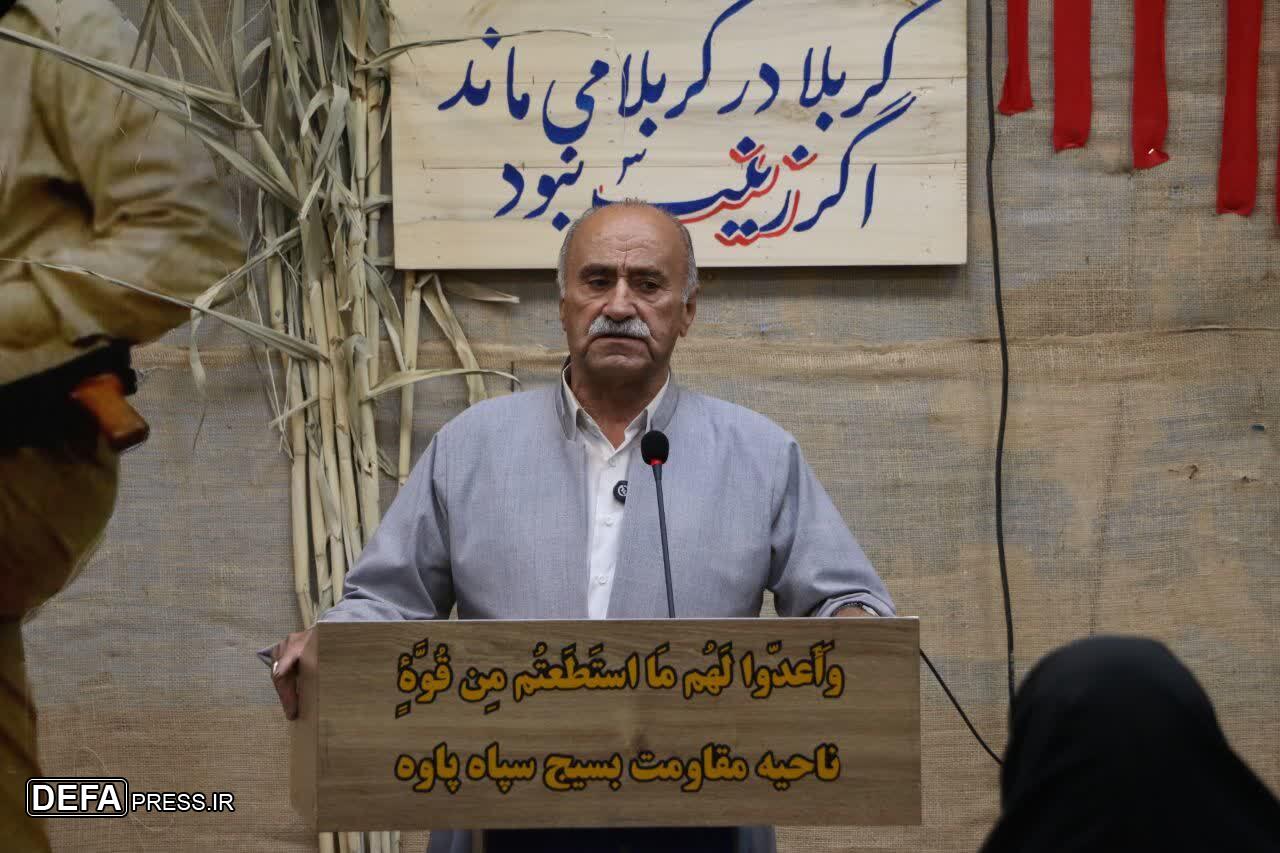 کربلا در کربلا می ماند
اگر زینب س نبود
وَأَعدّوا لَهُم مَا استَطَعتُم مِن قُوَّةٍ
ناحیه مقاومت بسیج سپاه پاوه
DEFAPRESS.IR